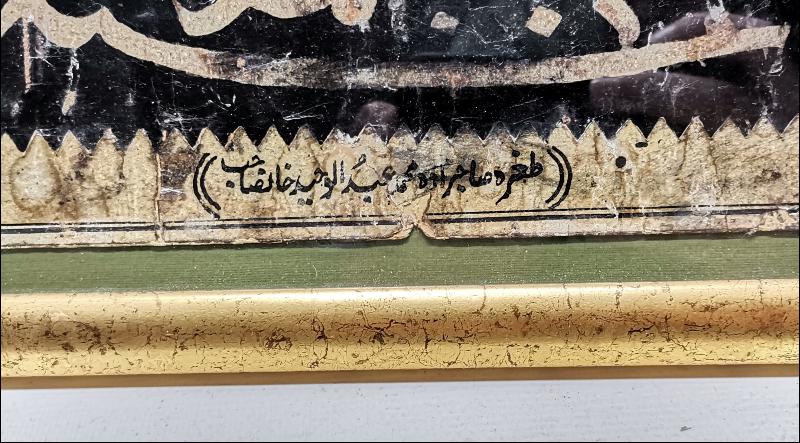 (طغره صاحبزاده محمد عبد الوحید خانصاحب)